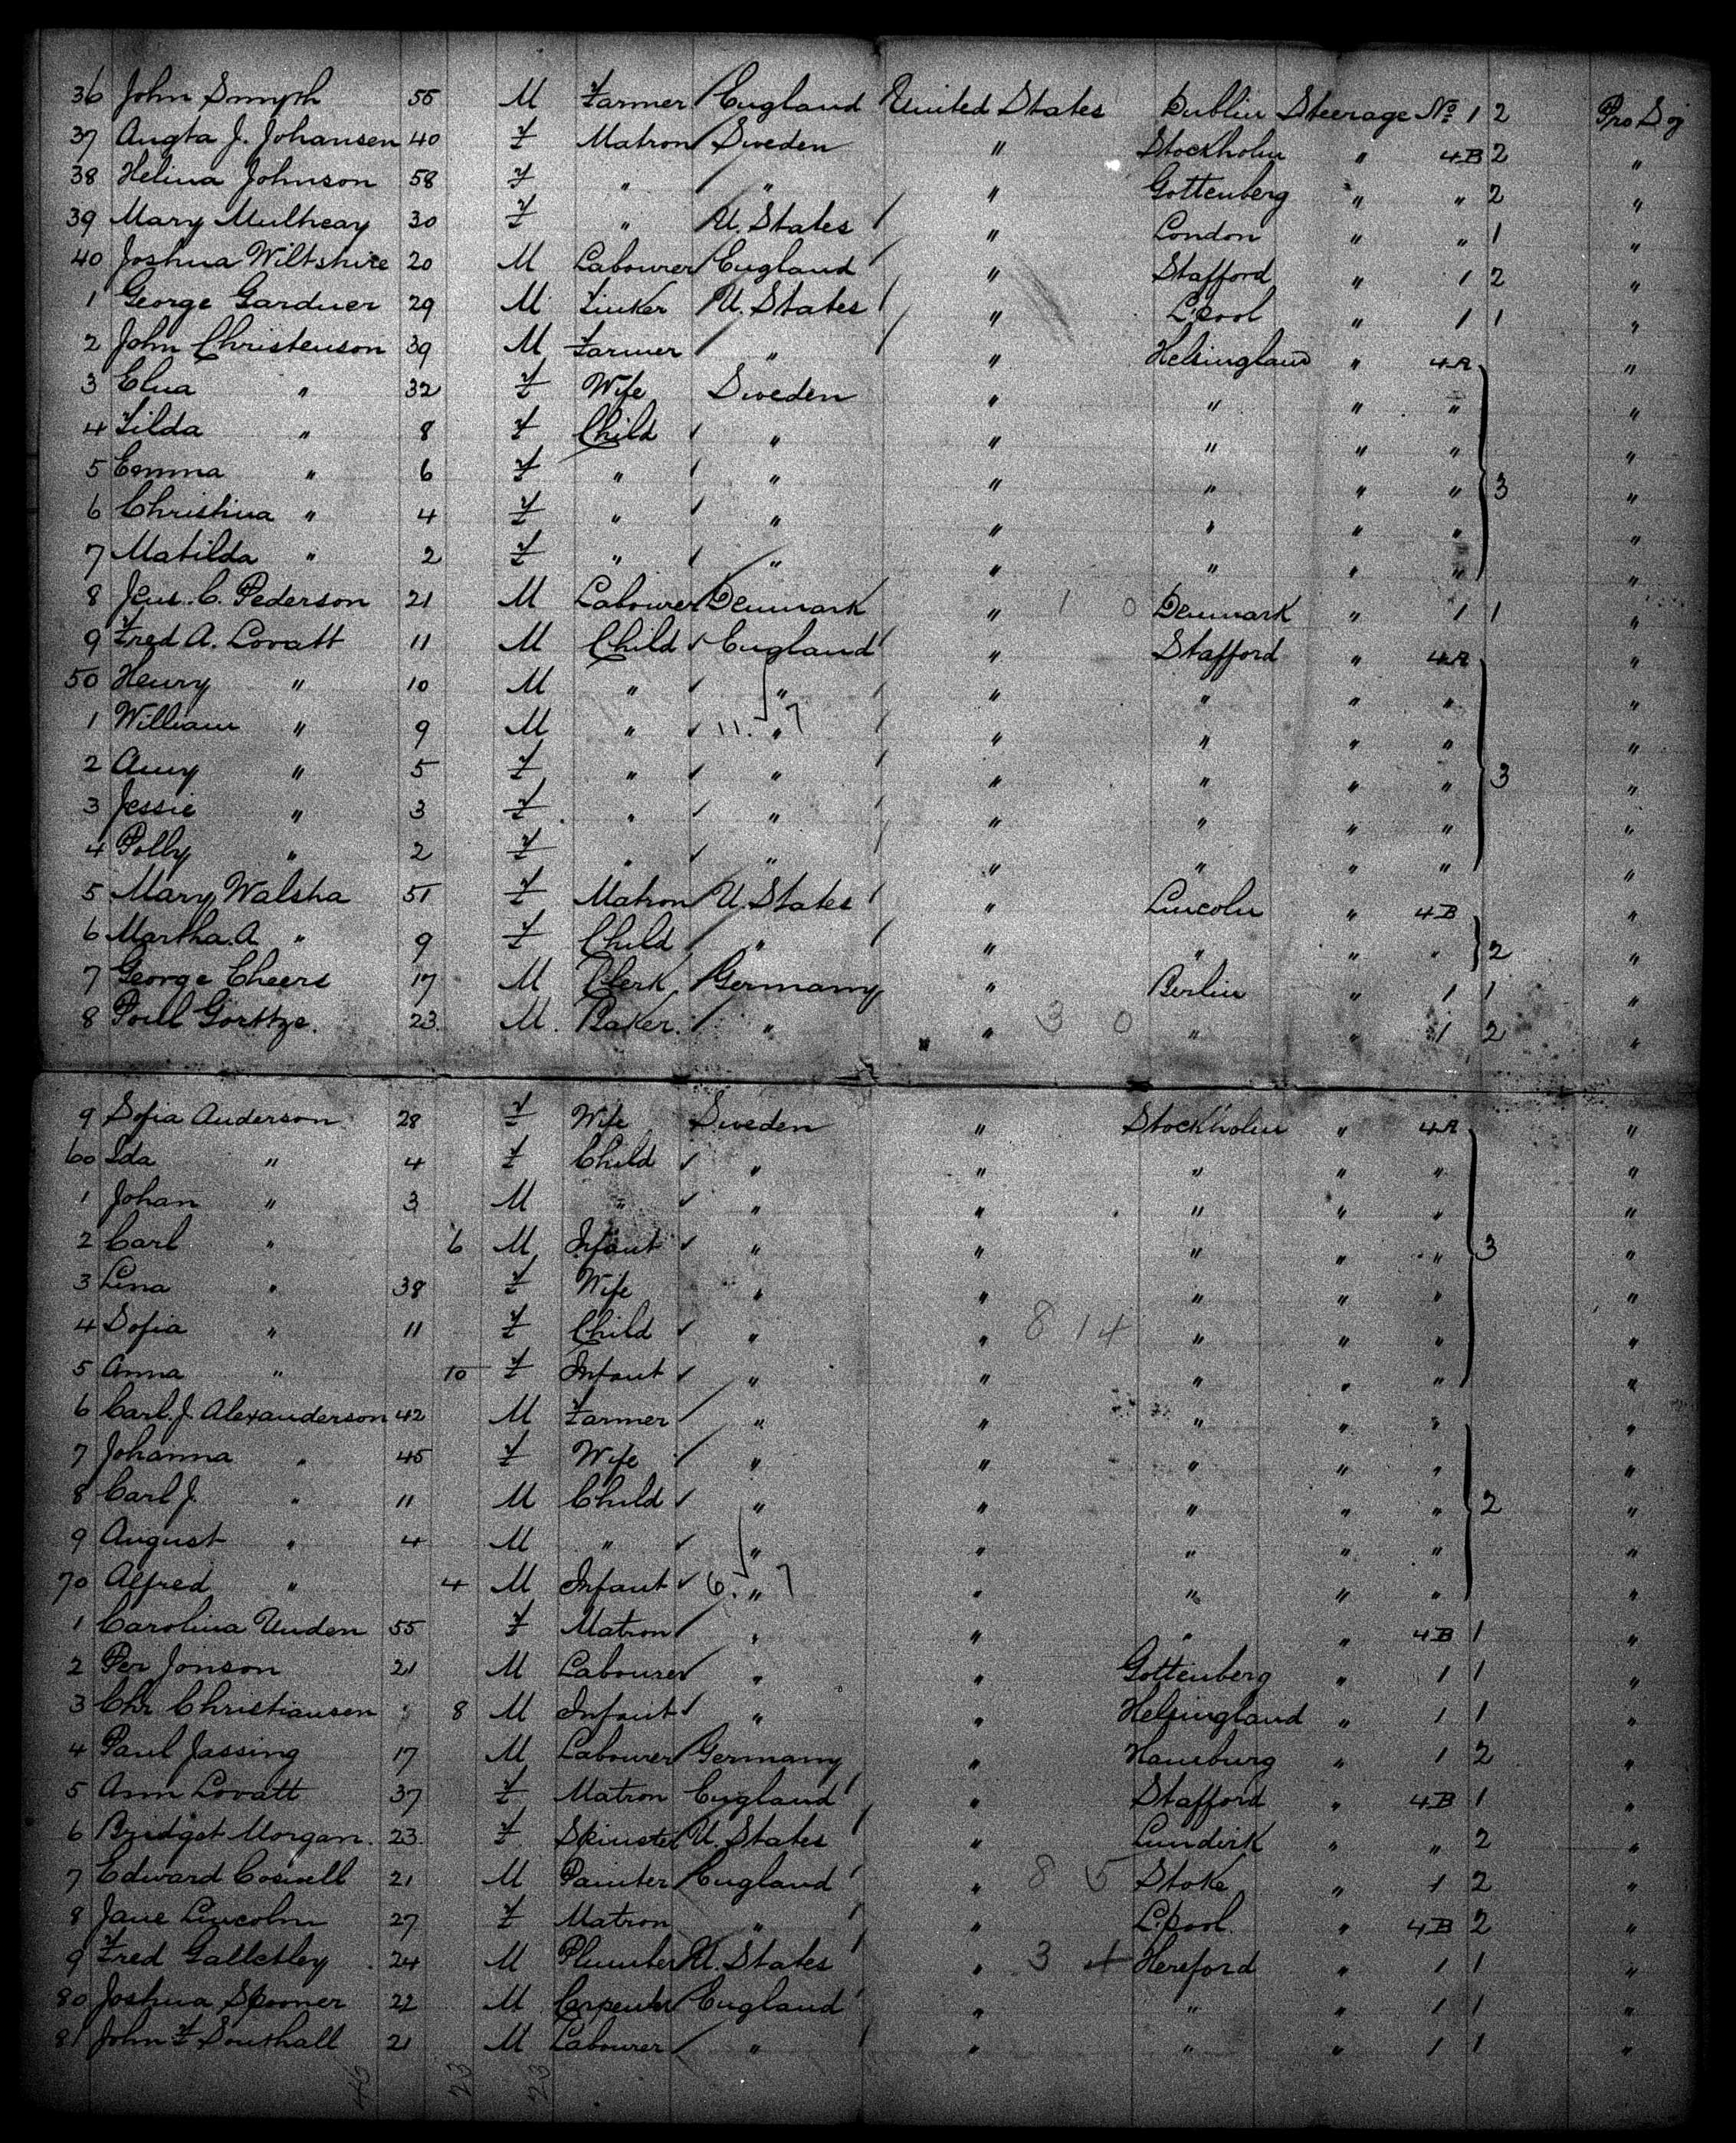 36 John Smyth 55 M Farmer England United States Dublin Steerage No. 1 2 Pro Sj
37 Augta J. Johansen 40 F Matron Sweden " Stockholm " 4B 2 "
38 Helina Johnson 58 F " " " Gottenberg " " 2 "
39 Mary Mulheay 30 F " U. States " London " " 1 "
40 Joshua Wiltshire 20 M Labourer England " Stafford " 1 2 "
1 George Gardner 29 M U. States " L'pool " 1 1 "
2 John Christenson 39 M Farmer " " Helsingland " 4A "
3 Elna " 32 F Wife Sweden " " " " "
4 Tilda " 8 F Child " " " " " "
5 Emma " 6 F " " " " " " 3 "
6 Christina " 4 F " " " " " " "
7 Matilda " 2 F " " " " " " "
8 Jens. C. Pederson 21 M Labourer Denmark " 1 0 Denmark " 1 1 "
9 Fred A. Lovatt 11 M Child England " Stafford " 4A "
50 Henry " 10 M " " " " " " "
1 William " 9 M " 11. " 7 " " " " "
2 Amy " 5 F " " " " " " 3 "
3 Jessie " 3 F " " " " " " "
4 Polly " 2 F " " " " " " "
5 Mary Walsha 51 F Matron U. States " Lincoln " 4B "
6 Martha. A " 9 F Child " " " " " 2 "
7 George Cheers 17 M Clerk Germany " Berlin " 1 1 "
8 Poul Gorttze. 23 M. Baker. " " 3 0 " " 1 2 "
9 Sofia Anderson 28 F Wife Sweden " Stockholm " 4A "
60 Ida " 4 F Child " " " " " "
1 Johan " 3 M " " " " " " "
2 Carl " 6 M Infant " " " " " 3 "
3 Lena " 38 F Wife " " " " " "
4 Sofia " 11 F Child " " 8 14 " " " "
5 Anna " 10 F Infant " " " " " "
6 Carl. J. Alexanderson 42 M Farmer " " " " " "
7 Johanna " 45 F Wife " " " " " "
8 Carl J. " 11 M Child " " " " " 2 "
9 August " 4 M " " " " " " "
70 Alfred " 4 M Infant 6. " 7 " " " " "
1 Carolina Unden 55 F Matron " " " " 4B 1 "
2 Per Jonson 21 M Labourer " " Gottenberg " 1 1 "
3 Chr Christiansen 8 M Infant " " Helsingland " 1 1 "
4 Paul Jassing 17 M Labourer Germany " Hamburg " 1 2 "
5 Ann Lovatt 37 F Matron England " Stafford " 4B 1 "
6 Bridget Morgan. 23 F Spinster U. States " Lundirk " " 2 "
7 Edward Coswell 21 M Painter England " 8 5 Stoke " 1 2 "
8 Jane Lincoln 27 F Matron " " L'pool " 4B 2 "
9 Fred Galletley 24 M Plumber U. States " 3 4 Hereford " 1 1 "
80 Joshua Spooner 22 M Carpenter England " " " 1 1 "
81 John F Southall 21 M Labourer " " " " 1 1 "
45 23 23